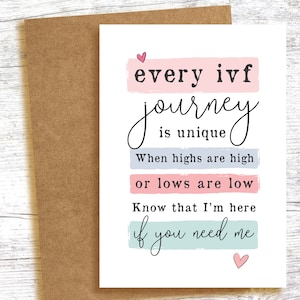 every ivf
journey
is unique
When highs are high
or lows are low
Know that I'm here
if you need me